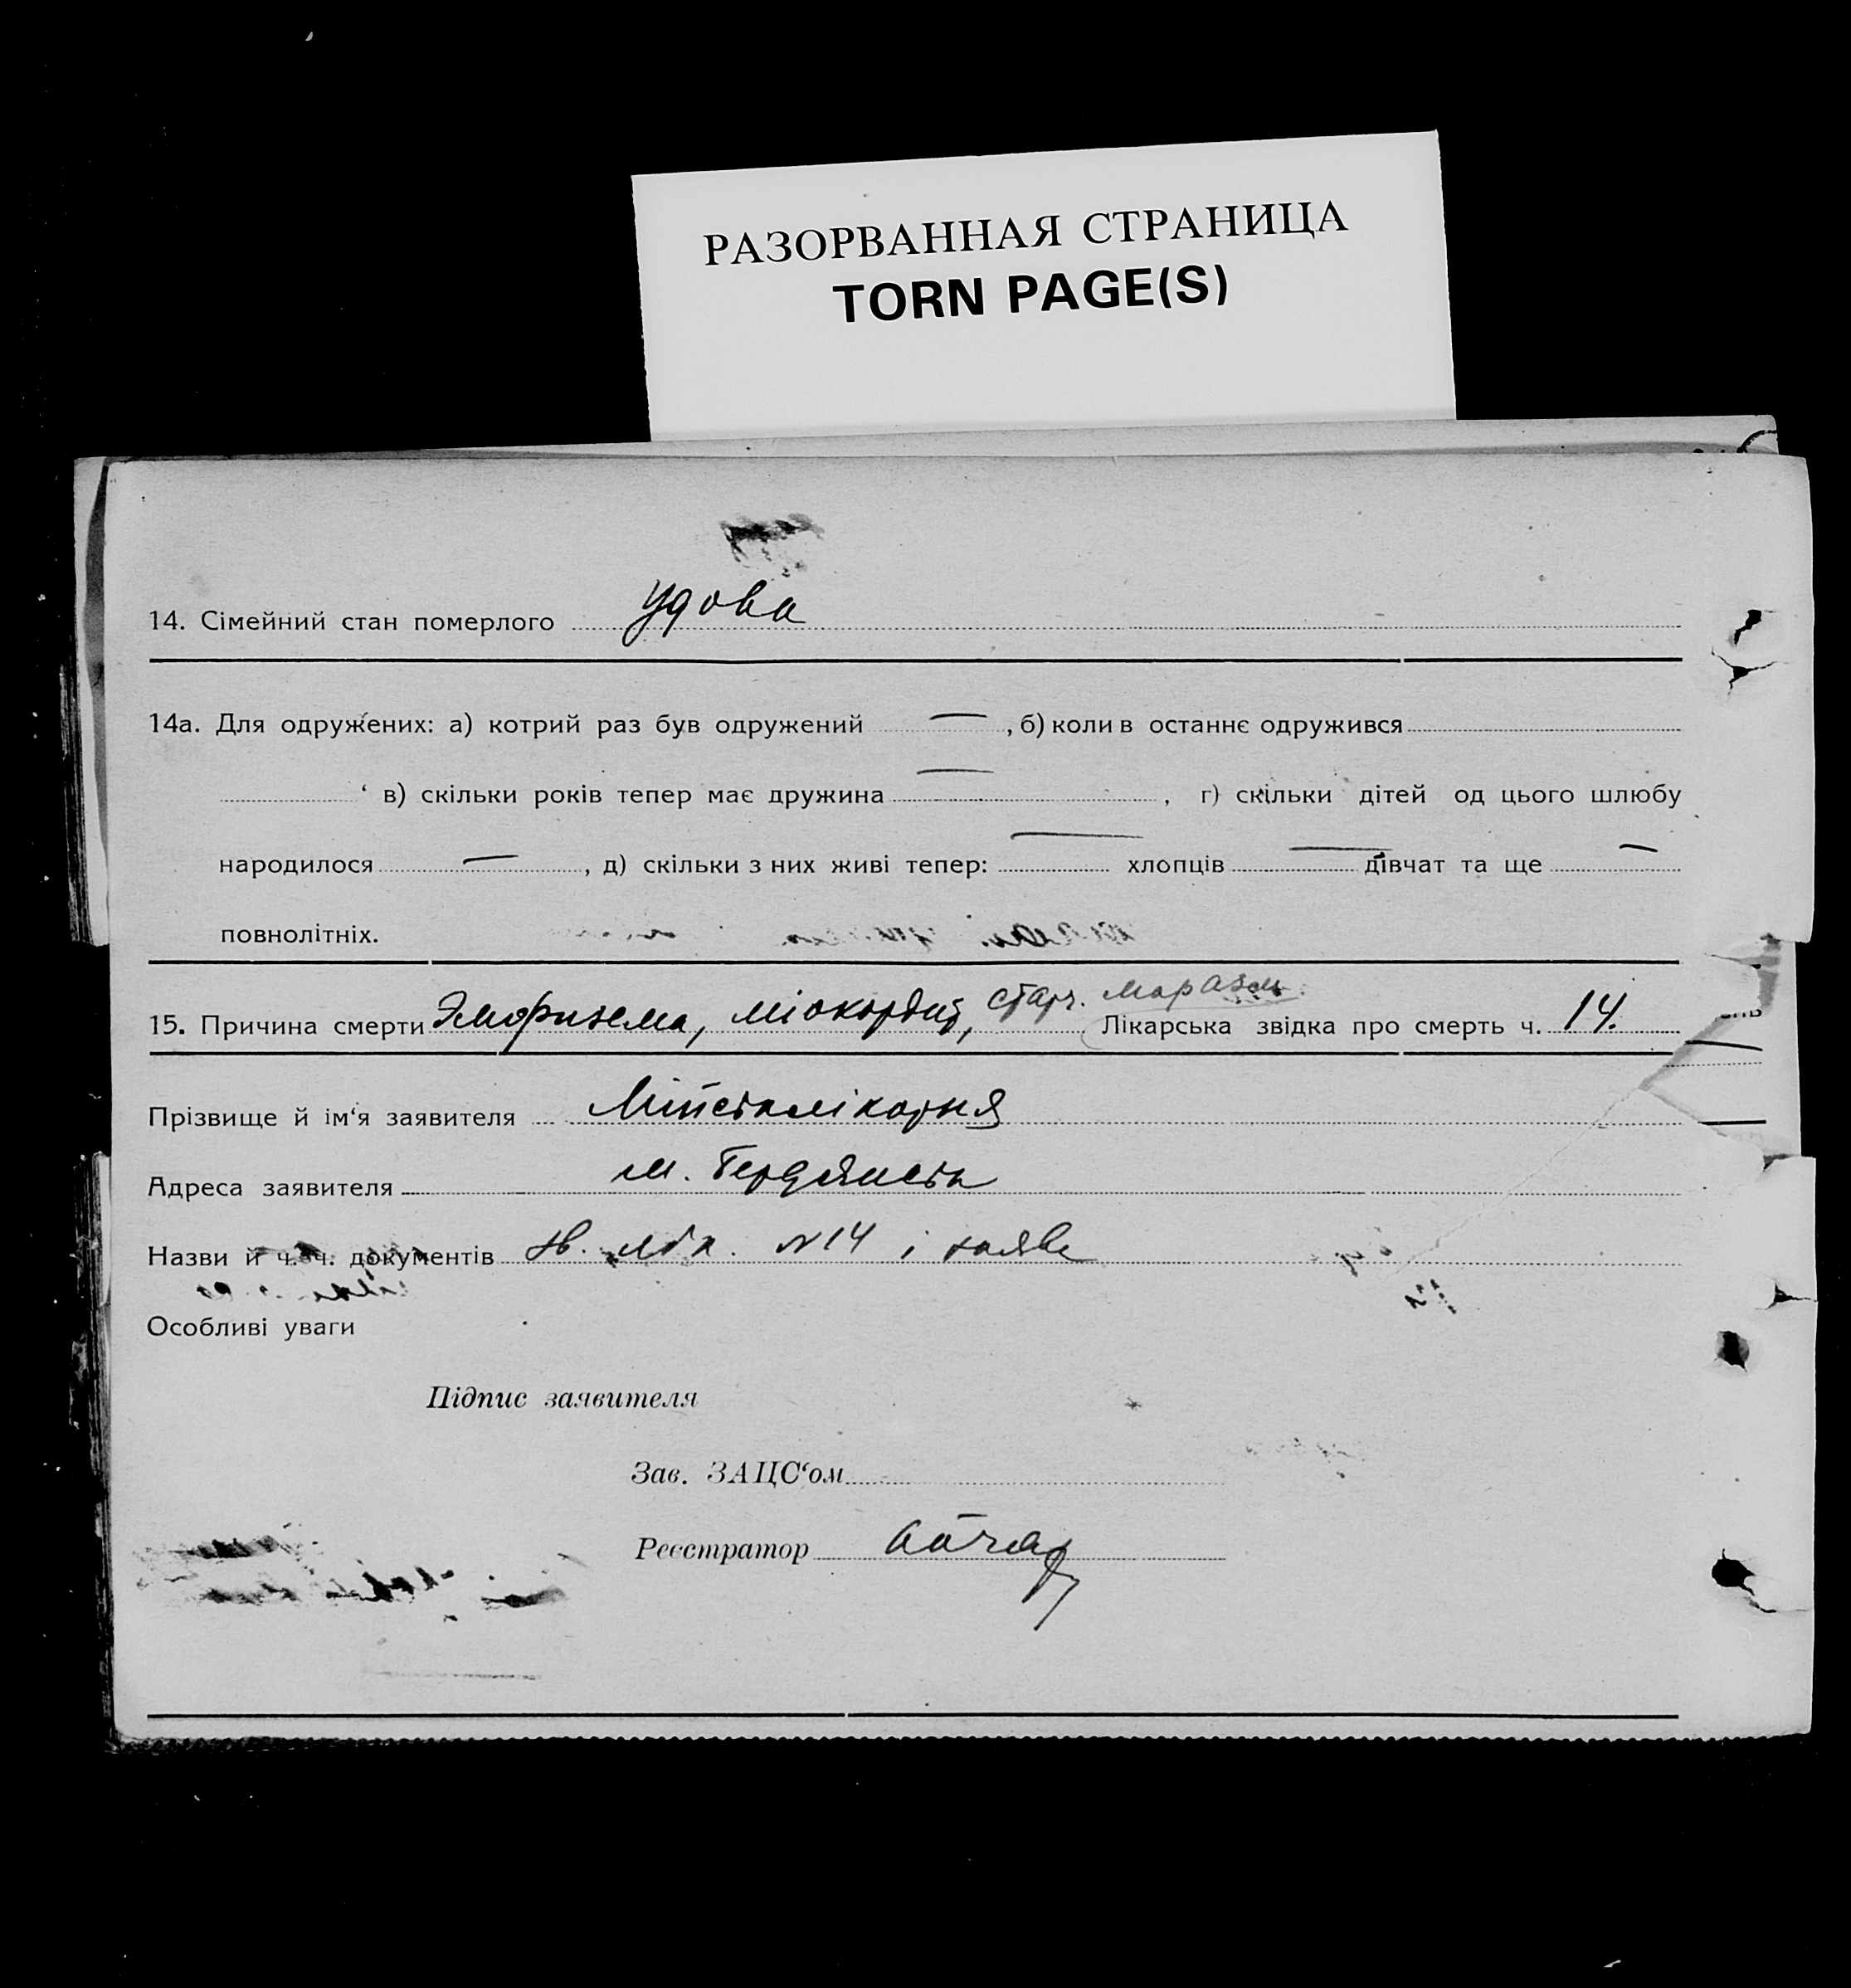 РАЗОРВАННАЯ СТРАНИЦА
TORN PAGE(S)
14. Сімейний стан померлого удова
14а. Для одружених: а) котрий раз був одружений — , б) коли в останнє одружився
в) скільки років тепер має дружина — , г) скільки дітей од цього шлюбу
народилося — , д) скільки з них живі тепер: — хлопців — дівчат та ще —
повнолітніх.
15. Причина смерти Эмфизема, міокордит, старч. маразм. Лікарська звідка про смерть ч. 14.
Прізвище й ім‘я заявителя Міськлікарня
Адреса заявителя м. Бердянськ
Назви й ч. ч. документів №14 і заяве
Особливі уваги
Підпис заявителя
Зав. ЗАЦС‘ом
Реєстратор